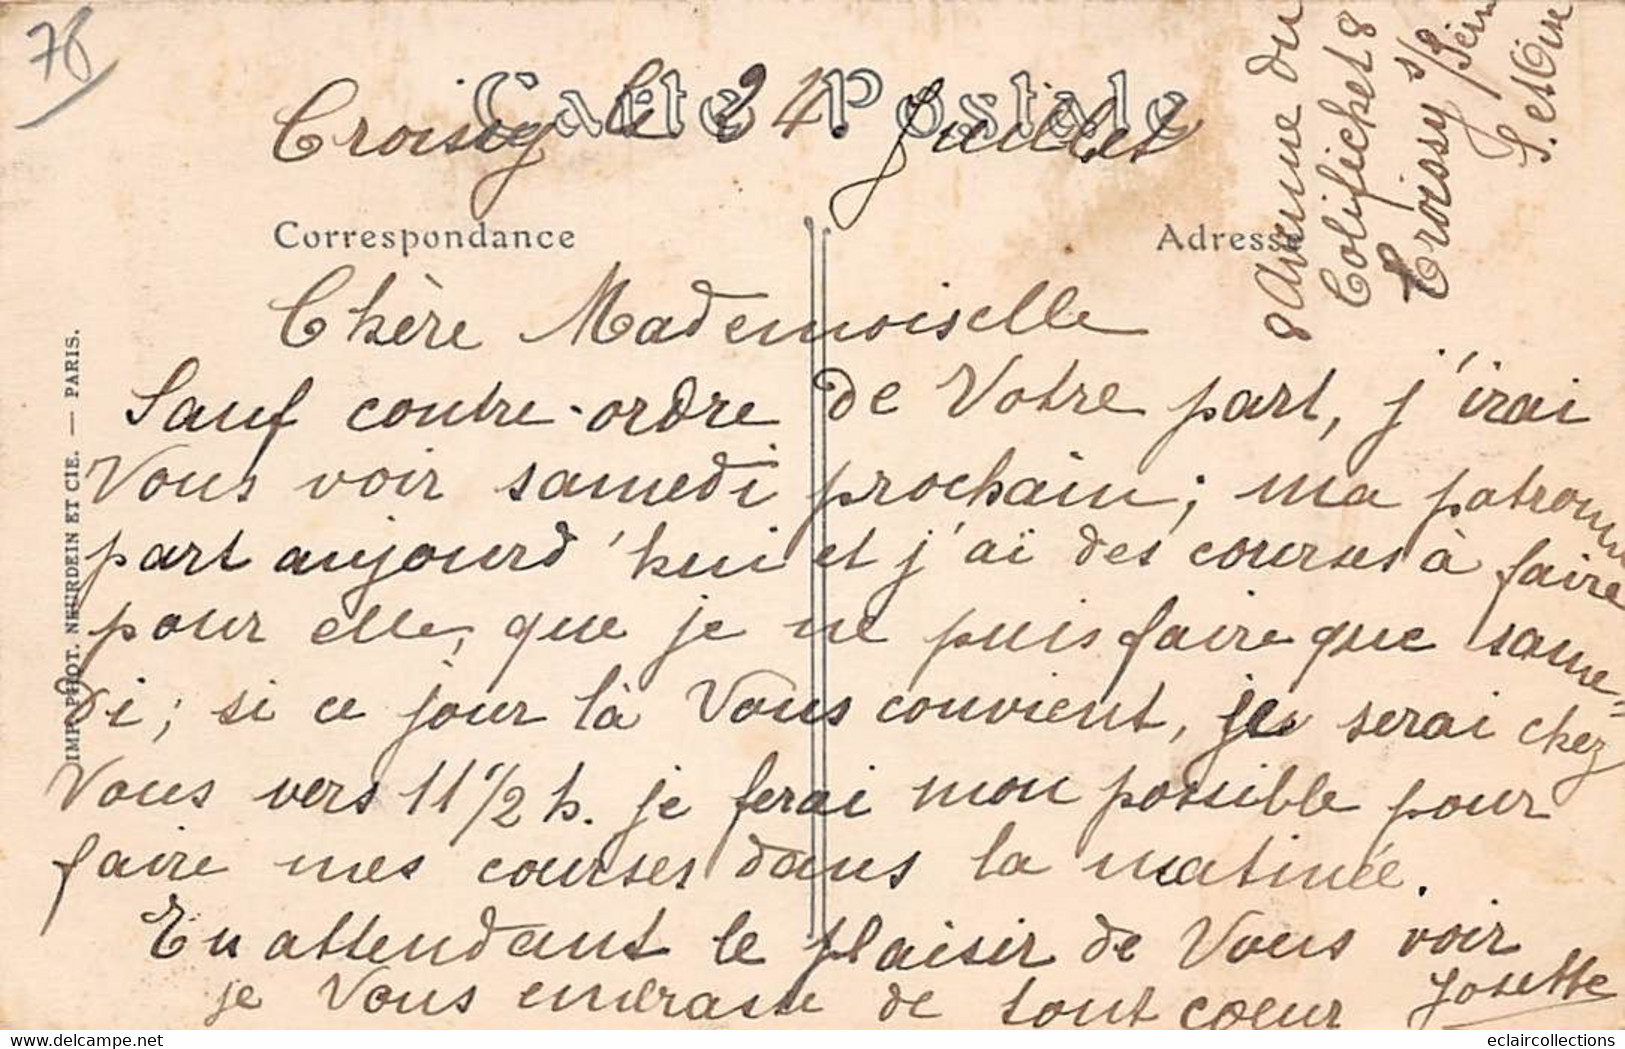 78
Carte Postale
Croissy le 24 Juillet
Correspondance
Adresse
8 Avenue du
Colifichet 8
Croissy s/ Seine
S. et Oise
Chère Mademoiselle
Sauf contre-ordre de Votre part, j'irai
Vous voir samedi prochain ; ma patronne
part aujourd'hui et j'ai des courses à faire
pour elle, que je ne puis faire que same=
di ; si ce jour là Vous convient, je serai chez
Vous vers 11 1/2 h. je ferai mon possible pour
faire mes courses dans la matinée.
En attendant le plaisir de Vous voir
je Vous embrasse de tout coeur Josette
IMP. PHOT. NEURDEIN ET CIE. — PARIS.
eclaircollections